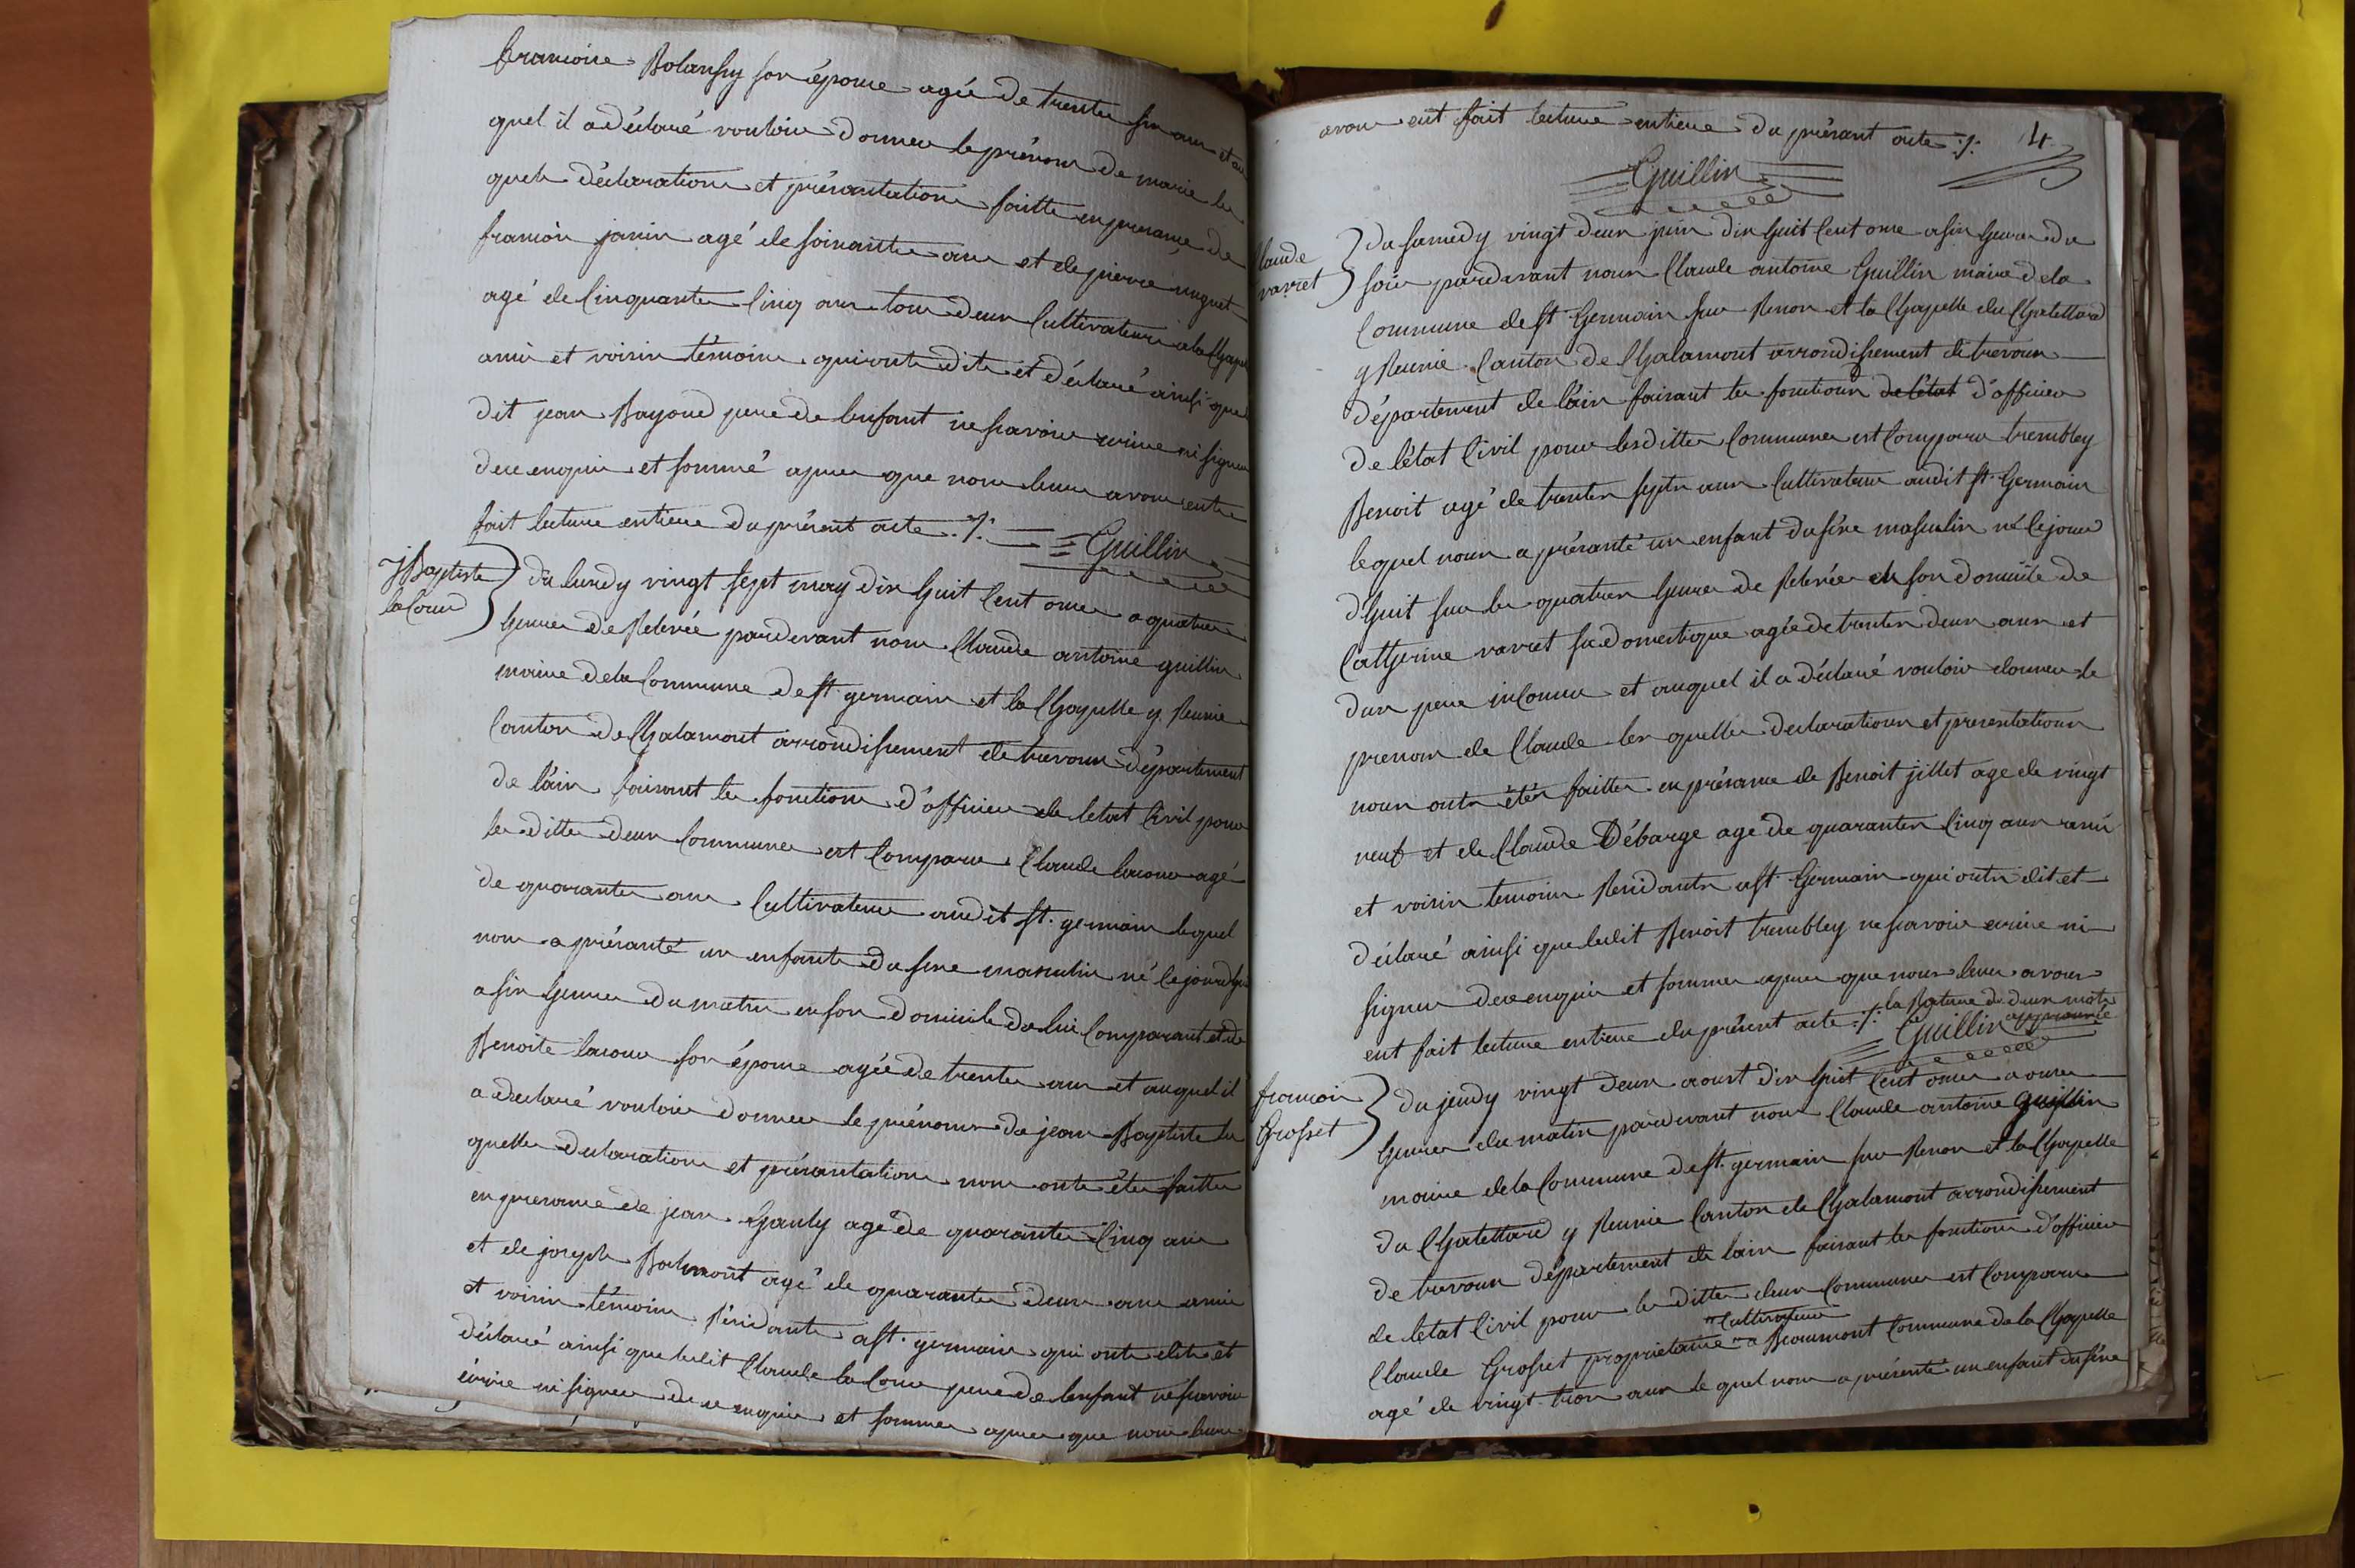 francoise Bolanfry son épouse agée de trente six ans et au
quel il a déclaré vouloir donner le prénom de marie les
quels déclaration et présantation faitte en presance de
francois janin agé de soixante ans et de pierre nuguet
agé de Cinquante Cinq ans tous deux Cultivateurs a la Chapel
amis et voisin témoins qui ont dits et déclaré ainsi que
dit jean Bayoud pere de lenfant ne savoir ecrire ni signer
dece enquis et sommé apres que nous leurs avons entre
fait lecture entiere du présent acte ./. Guillin
J Baptiste
la Cour
du lundy vingt sept may dix huit Cent onze a quatre
heures de Relevée pardevant nous Claude antoine guillin
maire de la Commune de st. germain et la Chapelle y Reunie
Canton de Chalamont arrondissement de trevoux département
de lain faisant les fonctions d'officier de letat Civil pour
les dittes deux Communes est Comparu Claude lacour agé
de quarante ans Cultivateur audit st. germain lequel
nous a présanté un enfants du sexe masculin né Cejourdhui
a six heures du matin en son domicile de lui Comparant et de
Benoite lacour son épouse agée de trente ans et auquel il
a declaré vouloir donner le prénoms de jean Baptiste les
quelles declaration et présantation nous onts étés faittes
en presance de jean Ganly agé de quarante Cinq ans
et de joseph Bolmont agé de quarante deux ans amis
et voisin témoins Résidants a st. germain qui onts dits et
déclaré ainsi que ledit Claude la Cour pere de lenfant ne savoir
écrire ni signer de ce enquis et sommer apres que nous leurs
avons ent fait lecture entiere du présant acte ./. 4
Guillin
Claude
varret
du samedy vingt deux juin dix huit Cent onze a six heures du
soir pardevant nous Claude antoine Guillin maire de la
Commune de st Germain sur Renon et la Chapelle du Chatellard
y Reunie Canton de Chalamont arrondissement de trevoux
département de l'ain faisant les fonctions de l'état d'officier
de l'état Civil pour lesdittes Communes est Comparu trembley
Benoit agé de trente septs ans Cultivateur audit st. Germain
lequel nous a présanté un enfant du séxe masculin né Cejour
dhuit sur les quatres heures de Relevée en son domicile de
Catherine varret sa domestique agée de trente deux ans et
dun pere inConnu et auquel il a déclaré vouloir donner le
prenom de Claude les quelles declarations et presentations
nous onts étés faittes en présance de Benoit jillet age de vingt
neuf et de Claude Débarge age de quarantes Cinq ans amis
et voisin temoins Residants a st. Germain qui onts dit et
déclaré ainsi que ledit Benoit trembley ne savoir ecrire ni
signer dece enquis et sommer apres que nous leurs avons
ent fait lecture entiere du présent acte ./. la Rature de deux mots
approuvée
Guillin
francois
Grosset
du jeudy vingt deux aoust dix huit Cent onze a onze
heures du matin pardevant nous Claude antoine guillin
maire de la Commune de st. germain sur Renon et la Chapelle
du Chatellard y Reunie Canton de Chalamont arrondissement
de trevoux département de lain faisant les fonctions d'officier
de letat Civil pour les dittes deux Communes est Comparu
Cultivateur
Claude Grosset proprietaire a Beaumont Commune de la Chapelle
agé de vingt trois ans le quel nous a présenté un enfant du séxe